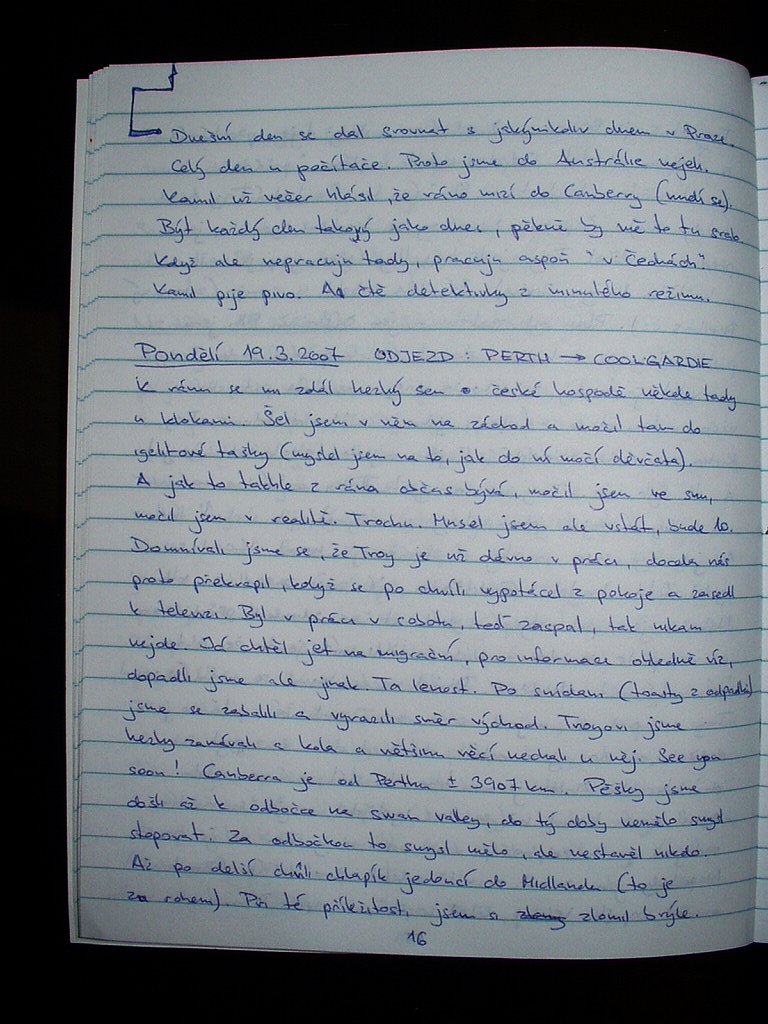 Dnešní den se dal srovnat s jakýmkoliv dnem v Praze.
Celý den u počítače. Proto jsme do Austrálie nejeli.
Kamil už večer hlásil, že ráno mizí do Canberry (nudí se).
Být každý den takový jako dnes, pěkně by mě to tu sralo.
Když ale nepracuju tady, pracuju aspoň "v Čechách".
Kamil pije pivo. A čtě detektivky z minulého režimu.
Pondělí 19.3.2007 ODJEZD: PERTH → COOLGARDIE
K ránu se mi zdál hezký sen o české hospodě někde tady
u klokanů. Šel jsem v něm na záchod a močil tam do
igelitové tašky (myslel jsem na to, jak do ní močí děvčata).
A jak to takhle z rána občas bývá, močil jsem ve snu,
močil jsem v realitě. Trochu. Musel jsem ale vstát, bude 10.
Domnívali jsme se, že Troy je už dávno v práci, docela nás
proto překvapil, když se po chvíli vypotácel z pokoje a zasedl
k televizi. Byl v práci v sobotu, teď zaspal, tak nikam
nejde. Já chtěl jet na migrační, pro informace ohledně víz,
dopadli jsme ale jinak. Ta lenost. Po snídani (toasty z odpadků)
jsme se zabalili a vyrazili směr východ. Troyovi jsme
hezky zamávali a kola a většinu věcí nechali u něj. See you
soon! Canberra je od Perthu ± 3907 km. Pěšky jsme
došli až k odbočce na Swan valley, do tý doby nemělo smysl
stopovat. Za odbočkou to smysl mělo, ale nestavěl nikdo.
Až po delší chvíli chlapík jedoucí do Midlandu (to je
za rohem). Při té příležitosti jsem si zlomil brýle.
16